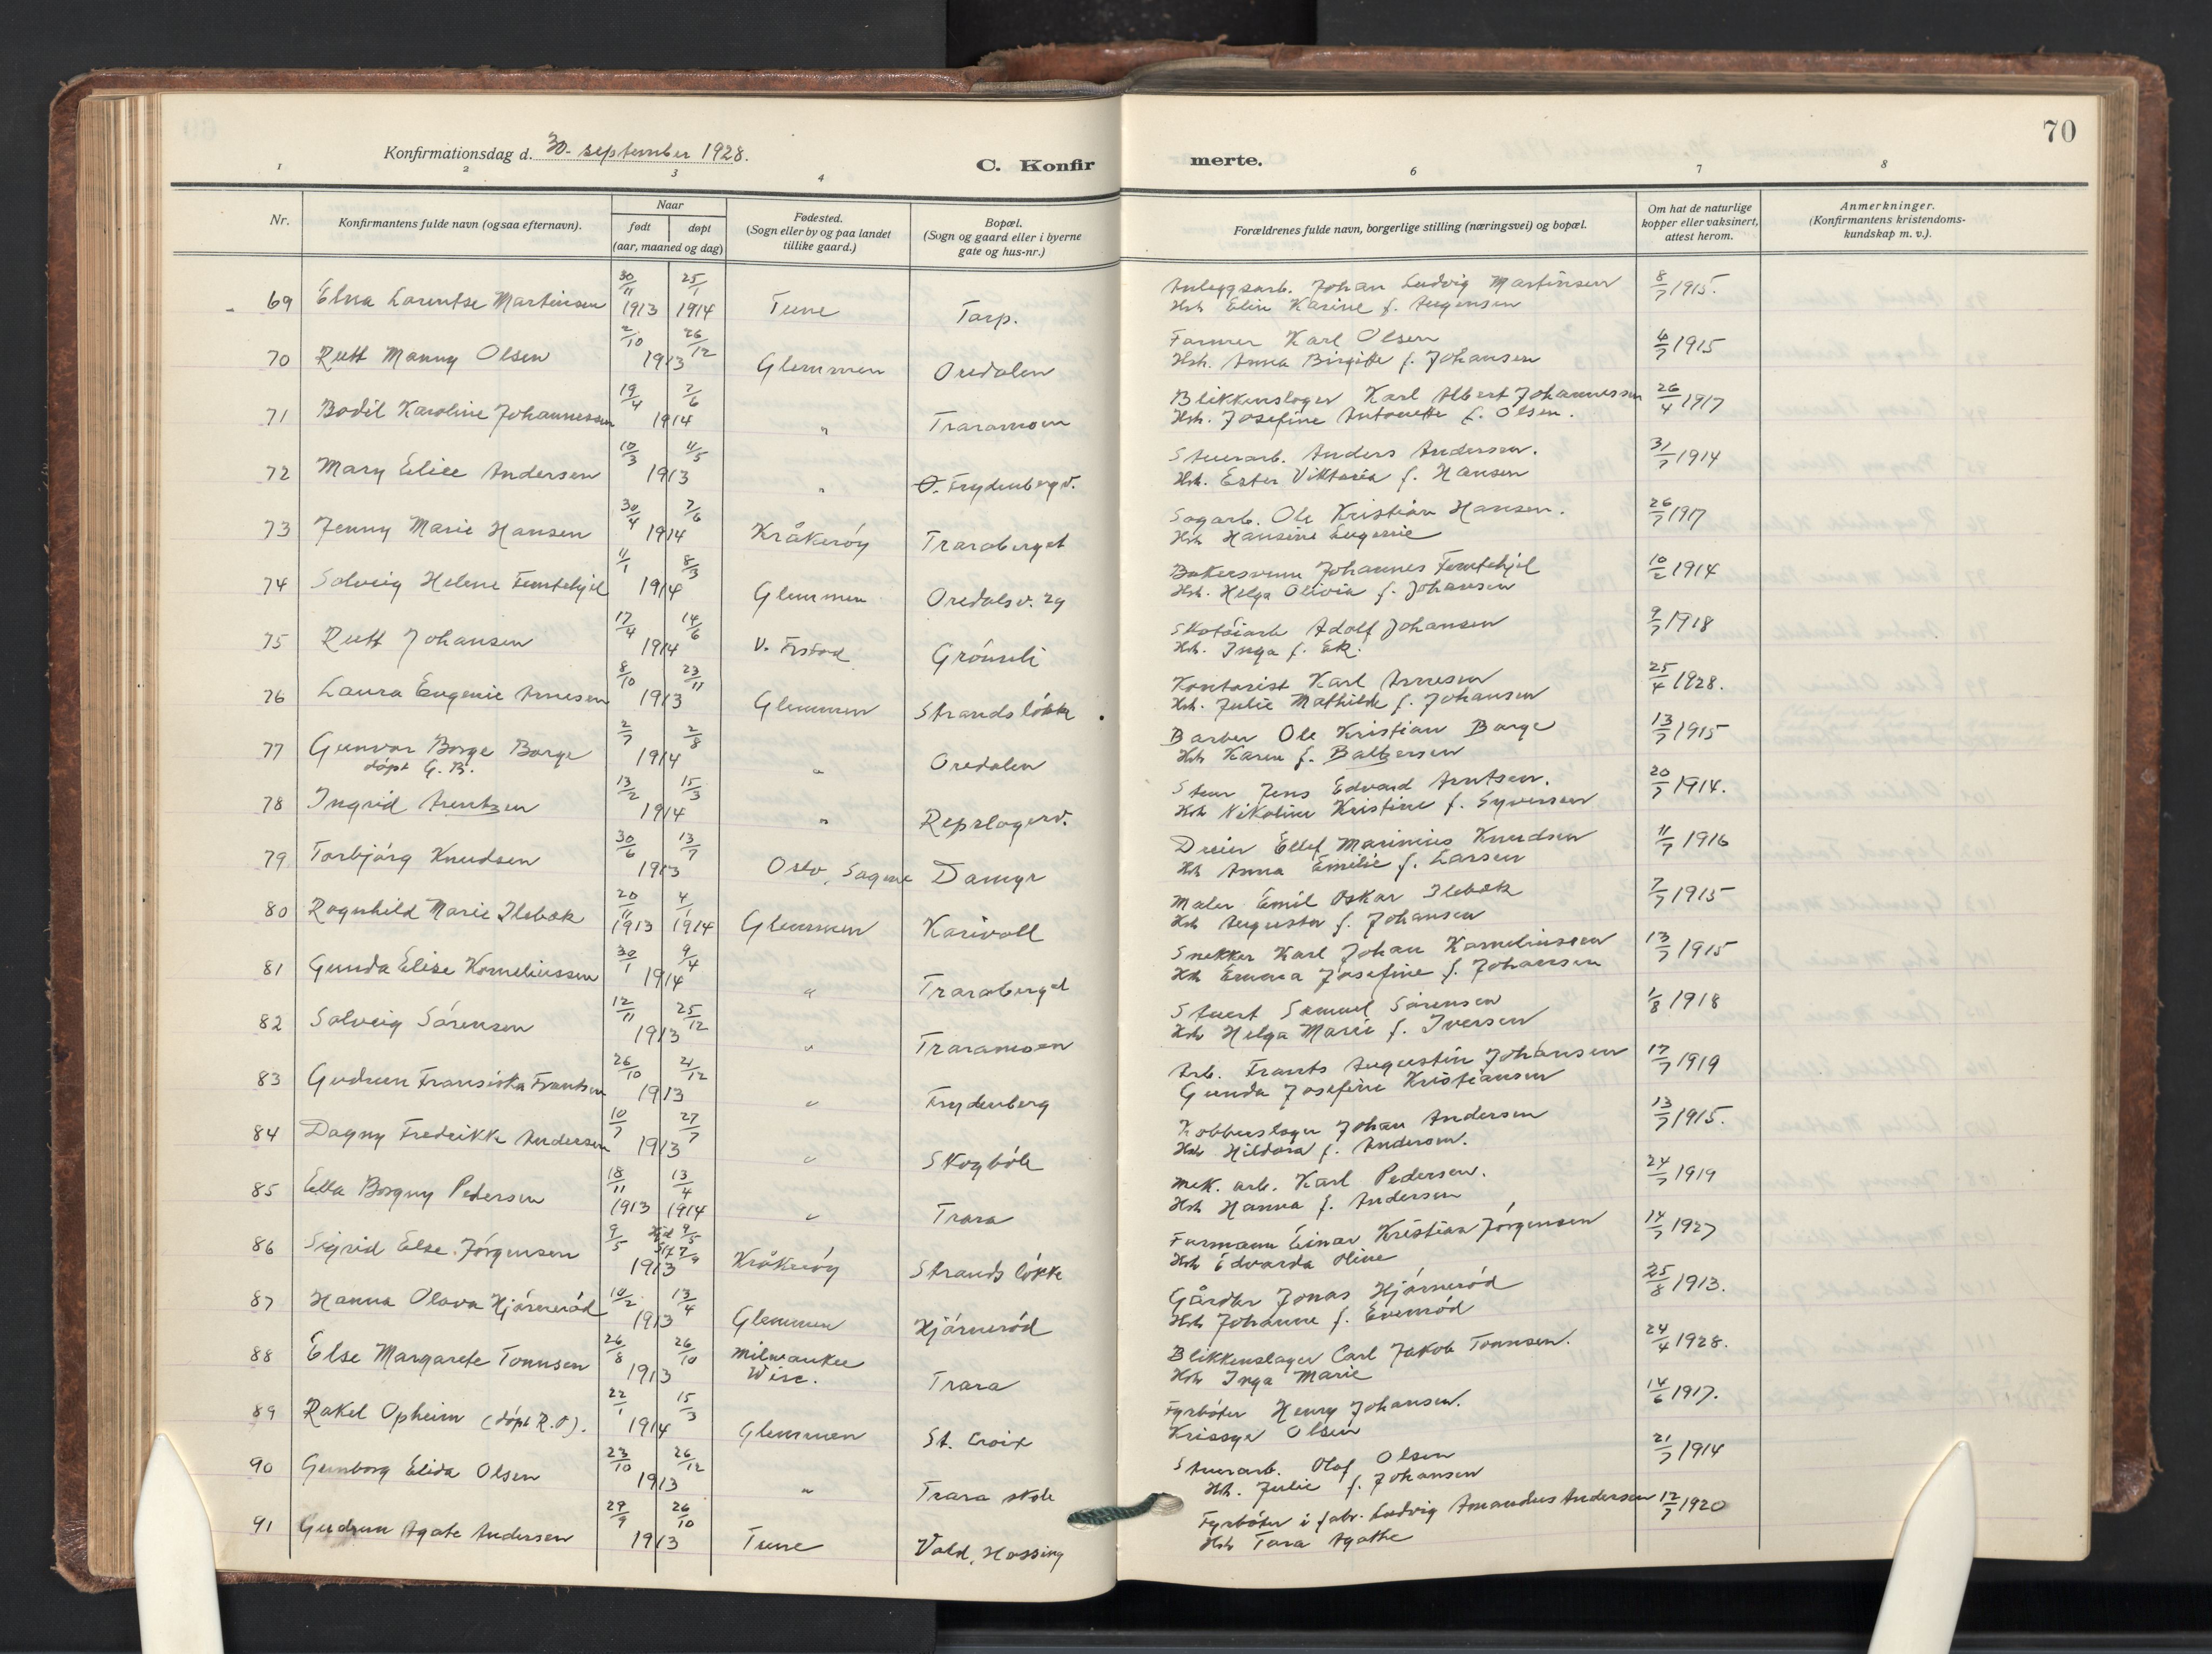 70
Konfirmationsdag d. 30. september 1928.
C. Konfir merte.
1 2 3 4 6 7 8
Nr.
Konfirmantens fulde navn (ogsaa efternavn).
Naar
født døpt
(aar, maaned og dag)
Fødested.
(Sogn eller by og paa landet
tillike gaard.)
Bopæl.
(Sogn og gaard eller i byerne
gate og hus-nr.)
Forældrenes fulde navn, borgerlige stilling (næringsvei) og bopæl.
Om hat de naturlige
kopper eller vaksinert,
attest herom.
Anmerkninger.
(Konfirmantens kristendoms-
kundskap m. v.).
69 Elna Lorentse Martinsen 30/11 1913 25/1 1914 Tune Torp. Anleggsarb. Johan Ludvig Martinsen 8/7 1915.
Hst Elin Karine f. Jørgensen
70 Rutt Manny Olsen 2/10 26/12 1913 Glemmen Oredalen Former Karl Olsen 6/7 1915
Hst. Anna Birgitte f. Johansen
71 Bodil Karoline Johannessen 19/4 7/6 1914 " Traramoen Blikkenslager Karl Albert Johannessen 26/4 1917
Hst. Josefine Antonette f. Olsen.
72 Mary Elise Andersen 10/3 11/5 1913 " O. Frydenbergv. Stuerarb. Anders Andersen. 31/7 1914
Hst. Ester Viktoria f. Hansen
73 Jenny Marie Hansen 30/4 7/6 1914 Kråkerøy Traraberget Sagarb. Ole Kristian Hansen. 26/7 1917
Hst Hansine Eugenie
74 Solveig Helene Femtehjil 11/1 8/3 1914 Glemmen Oredalsv. 29 Bakersvenn Johannes Femtehjil 10/2 1914
Hst. Helga Olivia f. Johansen
75 Rutt Johansen 17/4 14/6 1914 V. Frstad Grønli Skotøiarb Adolf Johansen 9/7 1918
Hst. Inga f. Ek.
76 Laura Eugenie Arnesen 8/10 23/11 1913 Glemmen Strandsløkke Kontorist Karl Arnesen 25/4 1928.
Hst. Julie Mathilde f. Johansen
77 Gunvor Borge Borge 2/7 2/8 1914 " Oredalen Barber Ole Kristian Borge 13/7 1915
døpt G. B. Hst Karen f. Baltzersen
78 Ingrid Arentzen 13/2 15/3 1914 " Repslagerv. Stuer Jens Edvard Arntsen. 20/7 1914.
Hst Nikoline Kristine f. Syversen
79 Torbjørg Knudsen 30/6 13/7 1913 Oslo, Sagene Damyr Dreier Ellef Marinius Knudsen 11/7 1916
Hst Anna Emilie f. Larsen
80 Ragnhild Marie Ilebæk 20/11 1913 4/1 1914 Glemmen Karivoll Maler Emil Oskar Ilebæk 7/7 1915
Hst Augusta f. Johansen
81 Gunda Elise Korneliussen 30/1 9/4 1914 " Traraberget Snekker Karl Johan Korneliussen 13/7 1915
Hst Emma Josefine f. Johansen
82 Solveig Sørensen 12/11 25/12 1913 " Traramoen Stuert Samuel Sørensen 1/8 1918
Hst Helga Marie f. Iversen
83 Gudrun Fransiska Frantsen 26/10 21/12 1913 " Frydenberg Arb. Frants Augustin Johansen 17/7 1919
Gunda Josefine Kristiansen
84 Dagny Fredrikke Andersen 10/7 27/7 1913 " Skogbøle Kobberslager Johan Andersen 13/7 1915.
Hst Hildora f. Andersen.
85 Ella Borgny Pedersen 18/11 1913 13/4 1914 " Trara Mek. arb. Karl Pedersen. 24/7 1919
Hst Hanna f. Andersen
86 Sigrid Else Jørgensen 9/5 1913 Kråkerøy Strandsløkke Formann Einar Kristian Jørgensen 14/7 1927
Hst Edvarda Oline
87 Hanna Olava Hjørnerød 10/2 13/4 1913 Glemmen Hjørnerød Gårdbr Jonas Hjørnerød 25/8 1913.
Hst Johanne f. Evenrød
88 Else Margarete Tonnsen 26/8 26/10 1913 Milwaukee Wisc. Trara Blikkenslager Carl Jakob Tonnsen. 24/4 1928.
Hst Inga Marie
89 Rakel Opheim (døpt R. O). 22/1 15/3 1914 Glemmen St. Croix Fyrbøter Henry Johansen. 14/6 1917.
Krissye Olsen
90 Gunborg Elida Olsen 23/10 26/12 1913 " Trara skole Stuerarb. Olaf Olsen 21/7 1914
Hst. Julie f. Johansen
91 Gudrun Agate Andersen 29/9 26/10 1913 Tune Vald. Hassing Fyrbøter i fabr. Ludvig Amandus Andersen 12/7 1920
Hst Tora Agathe